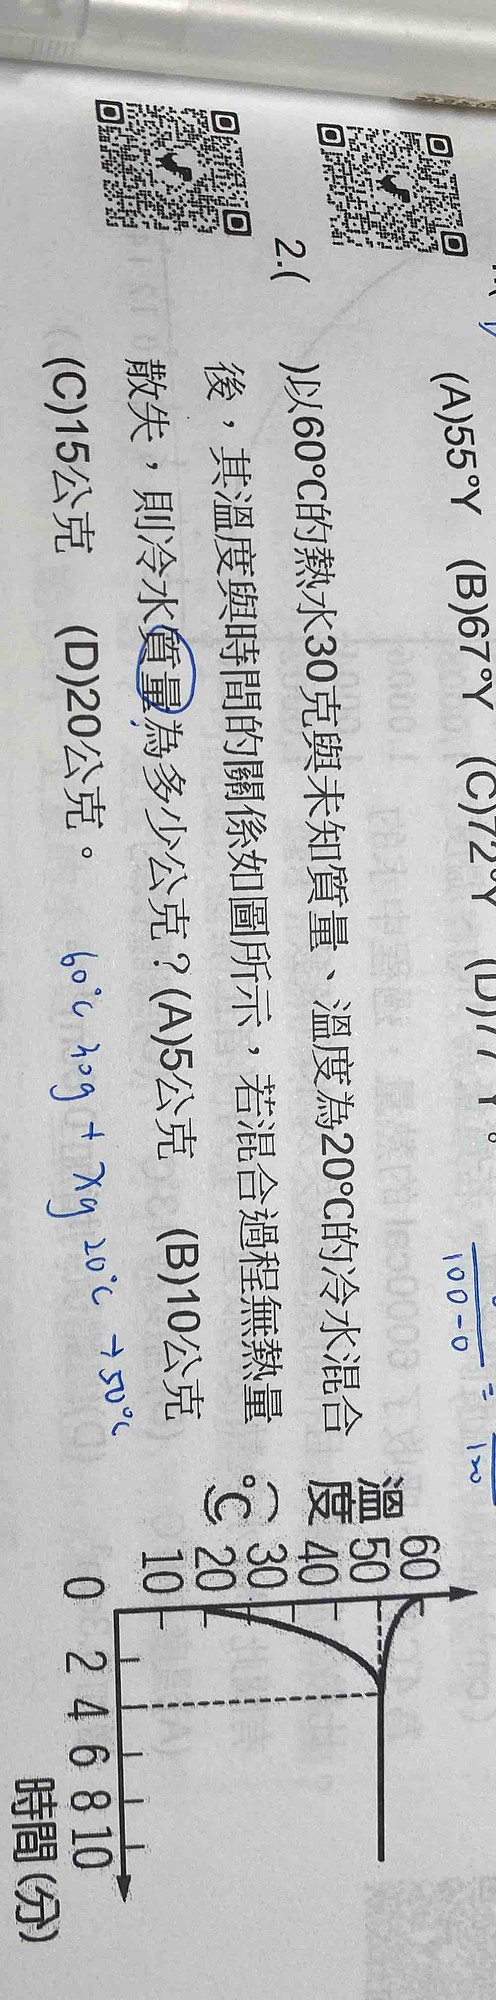 (A)55°Y (B)67°Y (C)72°Y (D)77°Y。
100-0 =
2.( )以60°C的熱水30克與未知質量、溫度為20°C的冷水混合
後,其溫度與時間的關係如圖所示,若混合過程無熱量
散失,則冷水質量為多少公克?(A)5公克 (B)10公克
(C)15公克 (D)20公克。
60°C 30g + xg 20°C → 50°C
溫度(°C)
60
50
40
30
20
10
0 2 4 6 8 10
時間(分)